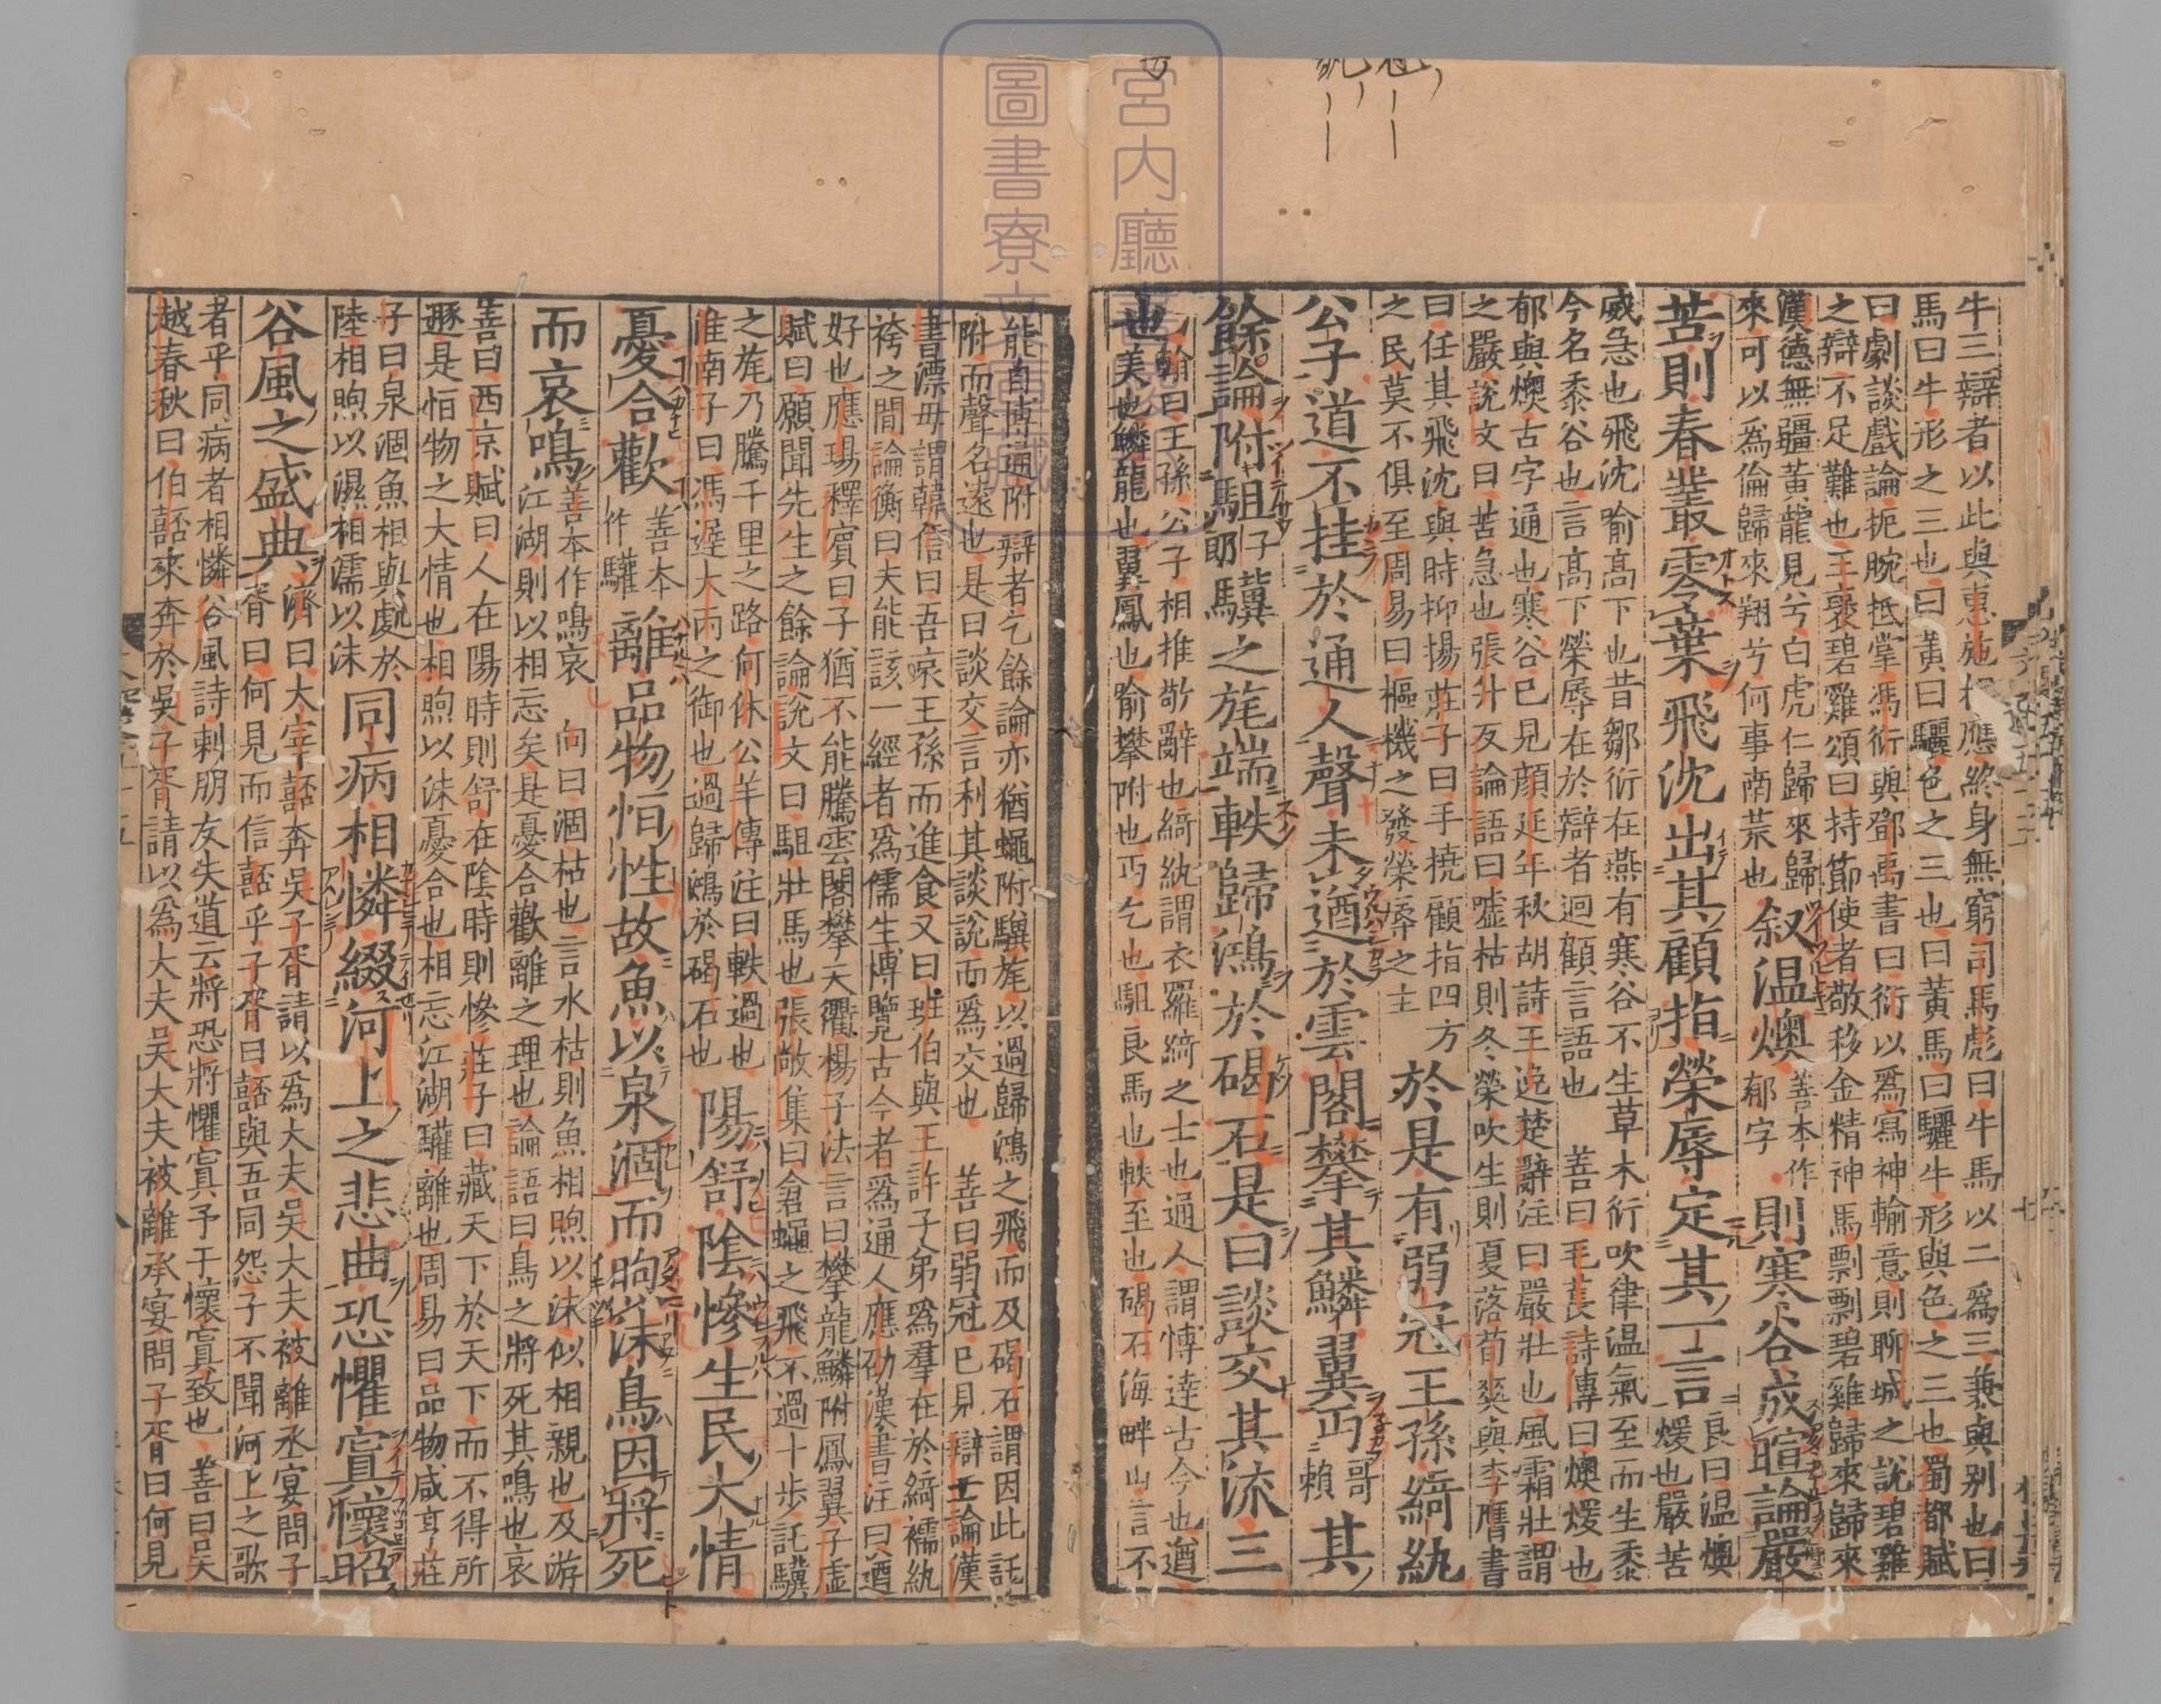 牛三辯者以此與惠施相應終身無窮司馬彪曰牛馬以二爲三兼與别也曰
馬曰牛形之三也曰黃曰驪色之三也曰黃馬曰驪牛形與色之三也蜀都賦
曰劇談戲論扼腕抵掌馮衍與鄧禹書曰衍以爲寫神輸意則聊城之說碧雞
之辯不足難也王襃碧雞頌曰持節使者敬移金精神馬剽剽碧雞歸來歸來
漢德無疆黃龍見兮白虎仁歸來歸
來可以爲倫歸來翔兮何事南荒也
叙温燠善本作郁字則寒谷成暄論嚴
苦則春叢零葉飛沈出其顧指榮辱定其一言良曰温燠煖也嚴苦
威急也飛沈喻高下也昔鄒衍在燕有寒谷不生草木衍吹律温氣至而生黍
今名黍谷也言高下榮辱在於辯者迴顧言語也 善曰毛萇詩傳曰燠煖也
郁與燠古字通也寒谷已見顔延年秋胡詩王逸楚辭注曰嚴壯也風霜壯謂
之嚴說文曰苦急也張升反論語曰噓枯則冬榮吹生則夏落荀爽與李膺書
曰任其飛沈與時抑揚莊子曰手撓顧指四方
之民莫不俱至周易曰樞機之發榮辱之主
於是有弱冠王孫綺紈
公子道不挂於通人聲未遒於雲閣攀其鱗翼丐哥賴其
餘論附駔子郎驥之旄端軼歸鴻於碣石是曰談交其流三
也
翰曰王孫公子相推敬辭也綺紈謂衣羅綺之士也通人謂博達古今也遒
美也鱗龍也翼鳳也喻攀附也丐乞也駔良馬也軼至也碣石海畔山言不
能自博通附辯者乞餘論亦猶蠅附驥旄以過歸鴻之飛而及碣石謂因此託
附而聲名遠也是曰談交言利其談說而爲交也 善曰弱冠已見辯亡論漢
書漂母謂韓信曰吾哀王孫而進食又曰班伯與王許子弟爲羣在於綺襦紈
袴之間論衡曰夫能該一經者爲儒生博覽古今者爲通人應劭漢書注曰遒
好也應瑒釋賓曰子猶不能騰雲閣攀天衢楊子法言曰攀龍鱗附鳳翼子虛
賦曰願聞先生之餘論說文曰駔壯馬也張敞集曰倉蠅之飛不過十步託驥
之旄乃騰千里之路何休公羊傳注曰軼過也
淮南子曰馮遲大丙之御也過歸鴻於碣石也
陽舒陰慘生民大情
憂合歡善本作驩離品物恒性故魚以泉涸而呴沫鳥因將死
而哀鳴善本作鳴哀 向曰涸枯也言水枯則魚相呴以沫似相親也及游
江湖則以相忘矣是憂合歡離之理也論語曰鳥之將死其鳴也哀
善曰西京賦曰人在陽時則舒在陰時則慘莊子曰藏天下於天下而不得所
遯是恒物之大情也相呴以沫憂合也相忘江湖驩離也周易曰品物咸亨莊
子曰泉涸魚相與處於
陸相呴以濕相濡以沫
同病相憐綴河上之悲曲恐懼寘懷昭
谷風之盛典濟曰大宰嚭奔吳子胥請以爲大夫吳大夫被離承宴問子
胥曰何見而信嚭乎子胥曰嚭與吾同怨子不聞河上之歌
者乎同病者相憐谷風詩刺朋友失道云將恐將懼寘予于懷寘致也 善曰吳
越春秋曰伯嚭來奔於吳子胥請以爲大夫吳大夫被離承宴問子胥曰何見